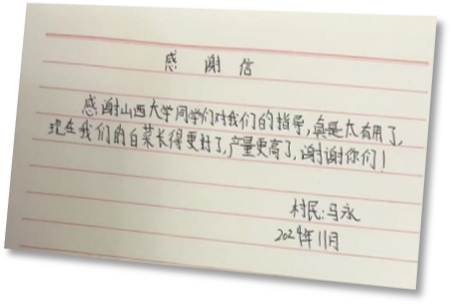 感谢信
感谢山西大学同学们对我们的指导,真是太有用了,
现在我们的白菜长得更好了,产量更高了,谢谢你们!
村民:马永
2024年11月